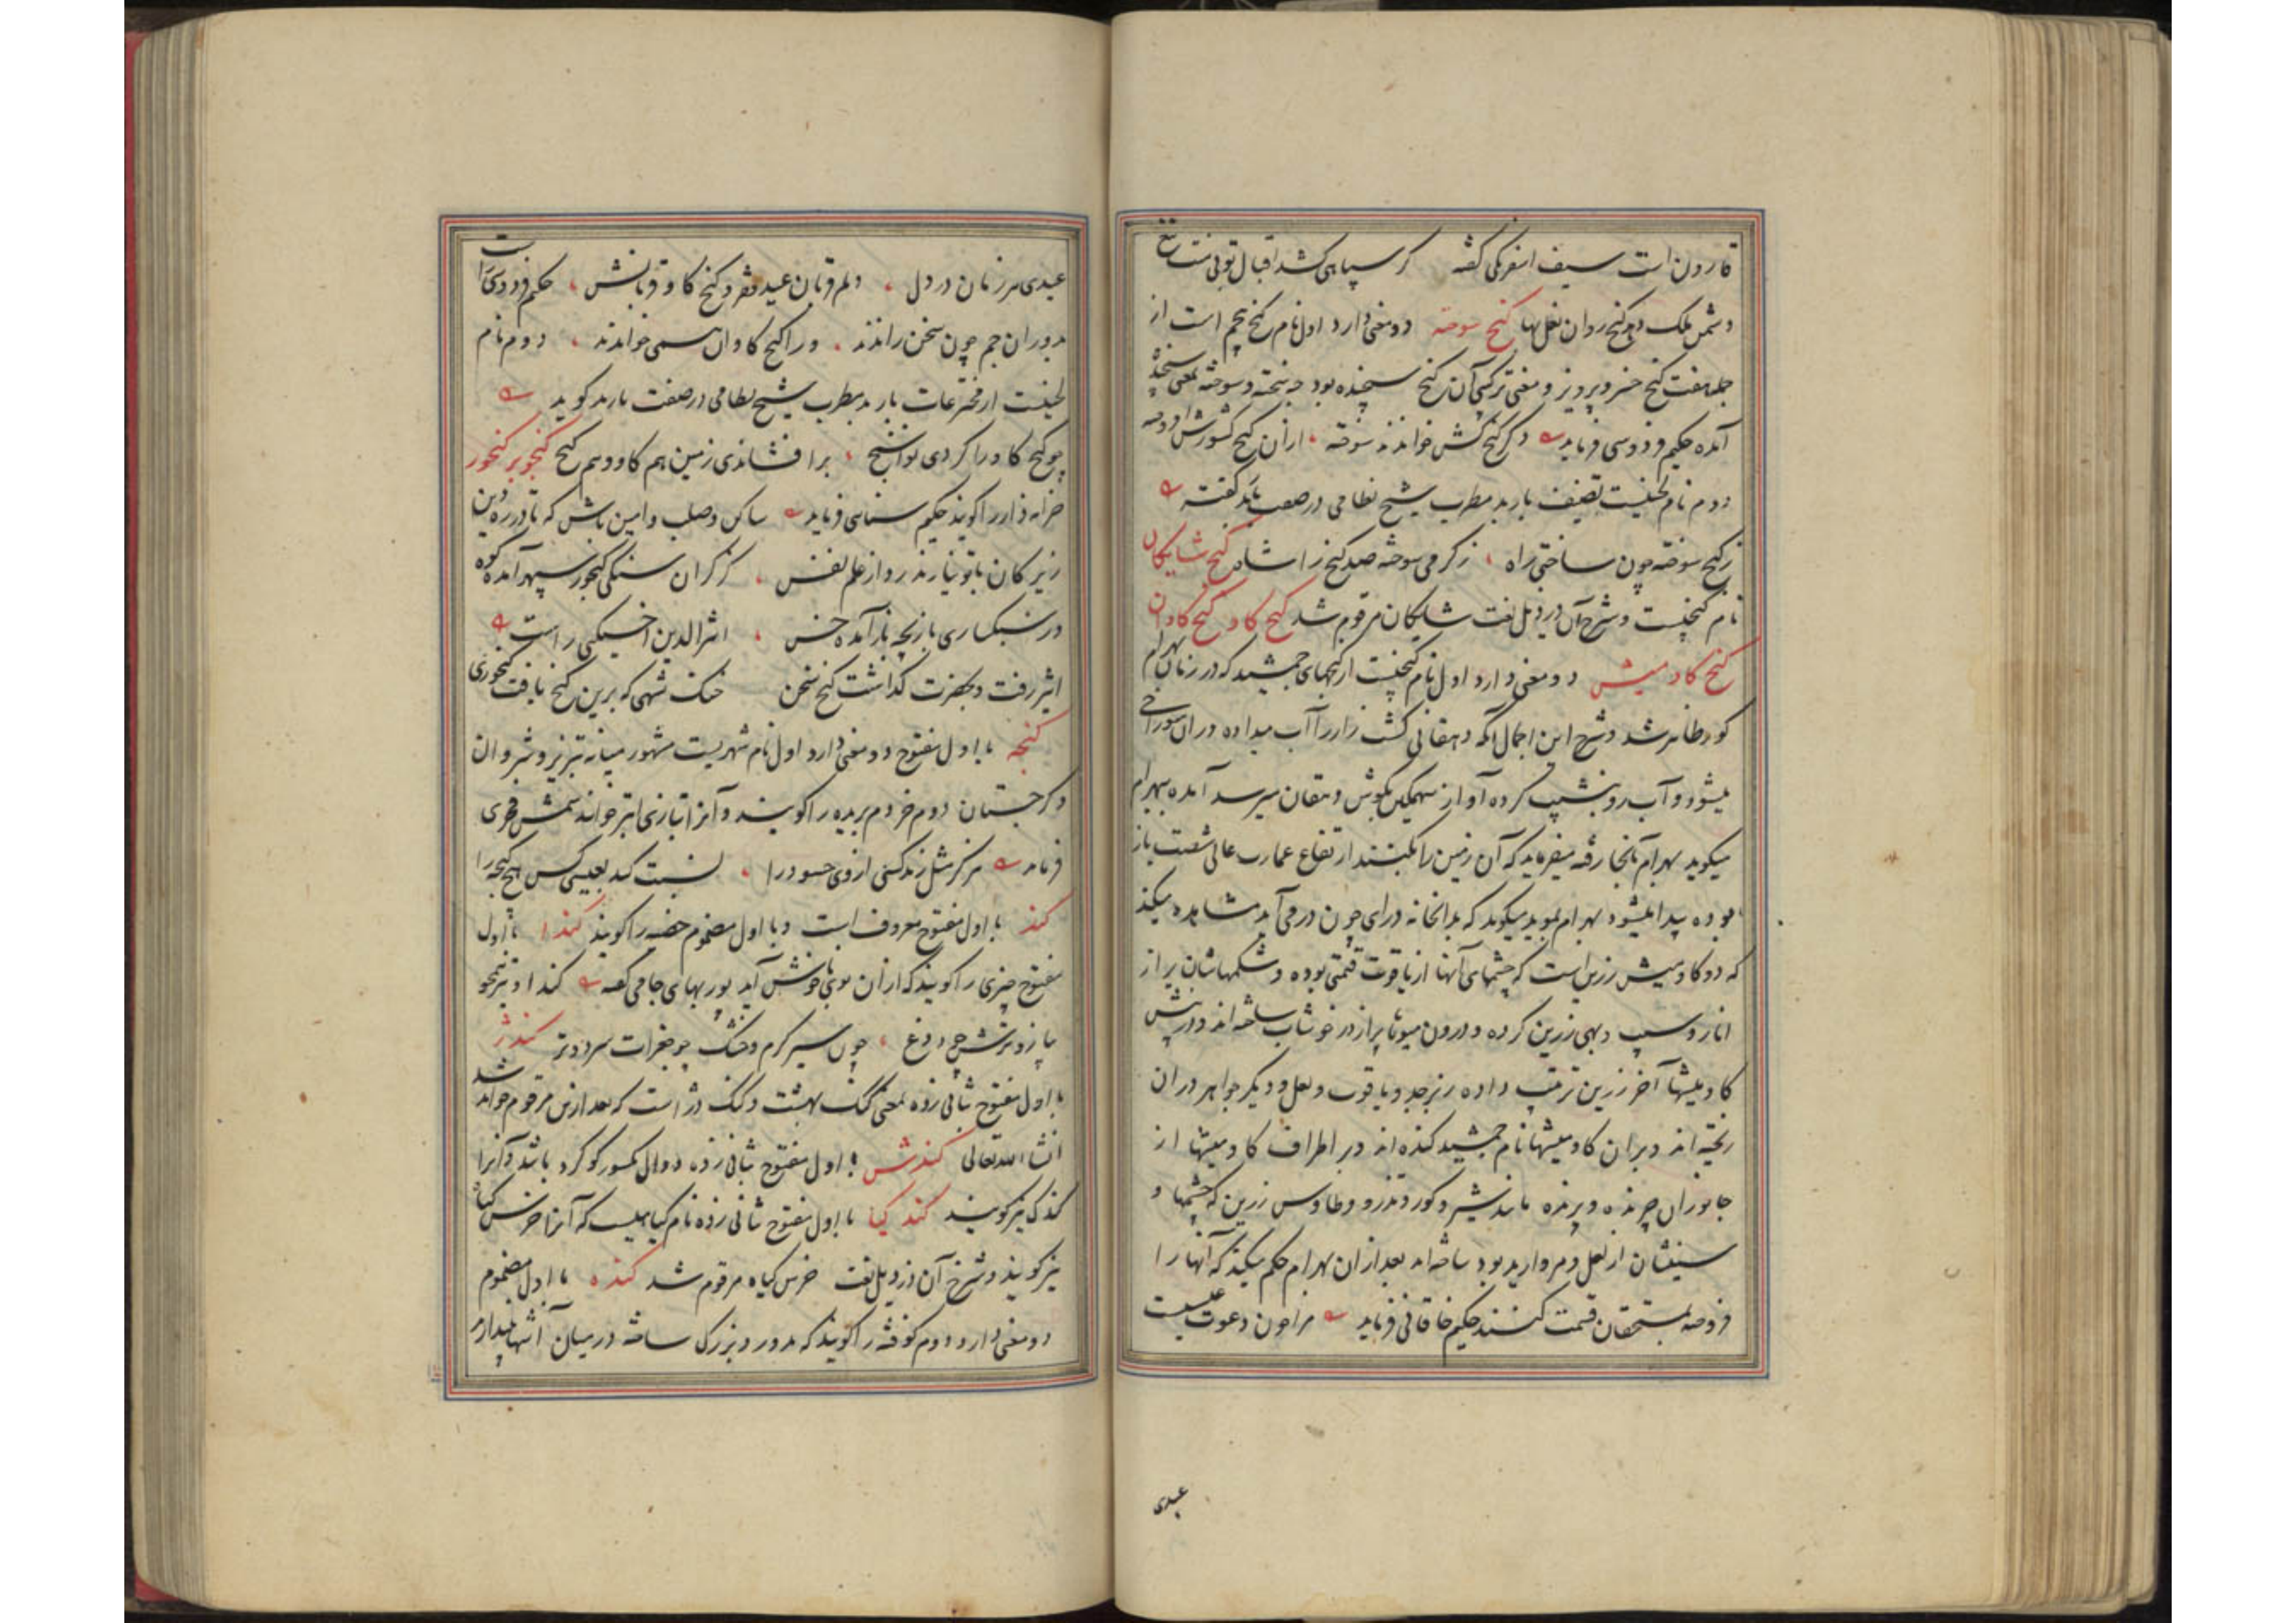 قارون است سیف اسفرنگی گفته کر سپاهی کشد اقبال تو بی منت تیغ
دشمن ملک دهد کنج روان نعل بها کنج سوخته دو معنی دارد اول نام کنج پنجم است از
جمله هفت کنج خسرو پرویز و معنی ترکیبی آن کنج سنجیده بود چه سخته و سوخته بمعنی سنجیده
آمده حکیم فردوسی فرماید دکر کنج کش خواندند سوخته از آن کنج کشور شد افروخته
دوم نام لحنیست تصنیف باربد مطرب شیخ نظامی در صفت باربد گفته
ز کنج سوخته چون ساختی راه ز کرمی سوخته صد کنج را شاه کنج شایکان
نام کنجیست و شرح آن در ذیل لغت شایکان مرقوم شد کنج کاو کنج کاوان
کنج کاو میش دو معنی دارد اول نام کنجیست از کنجهای جمشید که در زمان بهرام
کور ظاهر شد و شرح این اجمال آنکه دهقانی کشت زار را آب میداده در آن سوراخی
میشود و آب رو بنشیب کرده آواز سهمکین بکوش دهقان میرسد آمده ببهرام
میکوید بهرام آنجا رفته میفرماید که آن زمین را بکنند از تفاع عمارت عالی شصت باز
بوده پیدا میشود بهرام بموبد میکوید که بدانخانه درای چون در می آید مشاهده میکند
که دو کاو میش زرین است که چشمهای آنها از یاقوت قیمتی بوده و شکمهاشان پر از
انار و سیب و بهی زرین کرده و درون میوها پر از در خوشاب ساخته اند و در پیش
کاو میشها آخر زرین ترتیب داده زبرجد و یاقوت و لعل و دیگر جواهر در آن
ریخته اند و بر آن کاو میشها نام جمشید کنده اند و بر اطراف کاو میشها از
جانوران چرنده و پرنده مانند شیر و کور و تذرو و طاوس زرین که چشمها و
سینشان از لعل و مروارید بود ساخته اند بعد از آن بهرام حکم میکند که آنها را
فروخته بمستحقان قسمت کنند حکیم خاقانی فرماید مرا چون دعوت عیسیست
عیدی
عیدی هر زمان در دل دلم قربان عید فقر و کنج کاو قربانش حکیم فردوسی راست
بدوران جم چون سخن راندند ورا کنج کاوان همی خواندند دوم نام
لحنیست از مخترعات باربد مطرب شیخ نظامی در صفت باربد کوید
چو کنج کاو را کردی نواسنج بر افشاندی زمین هم کاو و هم کنج کنجور کنجور
خزانه دار را کویند حکیم سنائی فرماید ساکن و صلب و امین باش که تا در ره دین
زیرکان با تو نیارند زد از علم نفس کز کران سنکی کنجور سپهر آمده کوه
وز سبکساری بازیچه باز آمده خس اثیر الدین اخسیکتی راست
اثیر رفت و بحضرت گذاشت کنج سخن خنک شهی که برین کنج یافت کنجوری
کنجه با اول مفتوح دو معنی دارد اول نام شهریست مشهور میانه تبریز و شروان
و کرجستان دوم خر دم بریده را کویند و آنرا بتازی ابتر خوانند شمس فخری
فرماید هرکز مثل زند کسی از وی حسود را نسبت کند بعیسی کس هیچ کنجه را
کند با اول مفتوح معروف است و با اول مضموم خصیه را کویند کندا با اول
مفتوح چیزی را کویند که از آن بوی ناخوش آید پور بهای جامی گفته کندا و تیز همچو
پیاز و ترش چو دوغ چون سیر کرم و خشک چو جغرات سرد و تر کندژ
با اول مفتوح بثانی زده بمعنی کنک بهشت و کنک دژ است که بعد ازین مرقوم خواهد شد
انشاء الله تعالی کندش با اول مفتوح بثانی زده و دال مکسور کوکرد باشد و آنرا
کندک نیز کویند کند کیا با اول مفتوح ثانی زده نام کیاهیست که آنرا خرس کیاه
نیز کویند و شرح آن در ذیل لغت خرس کیاه مرقوم شد کنده با اول مضموم
دو معنی دارد دوم کوفته را کویند که مدور و بزرگ ساخته در میان آشها بیندازند